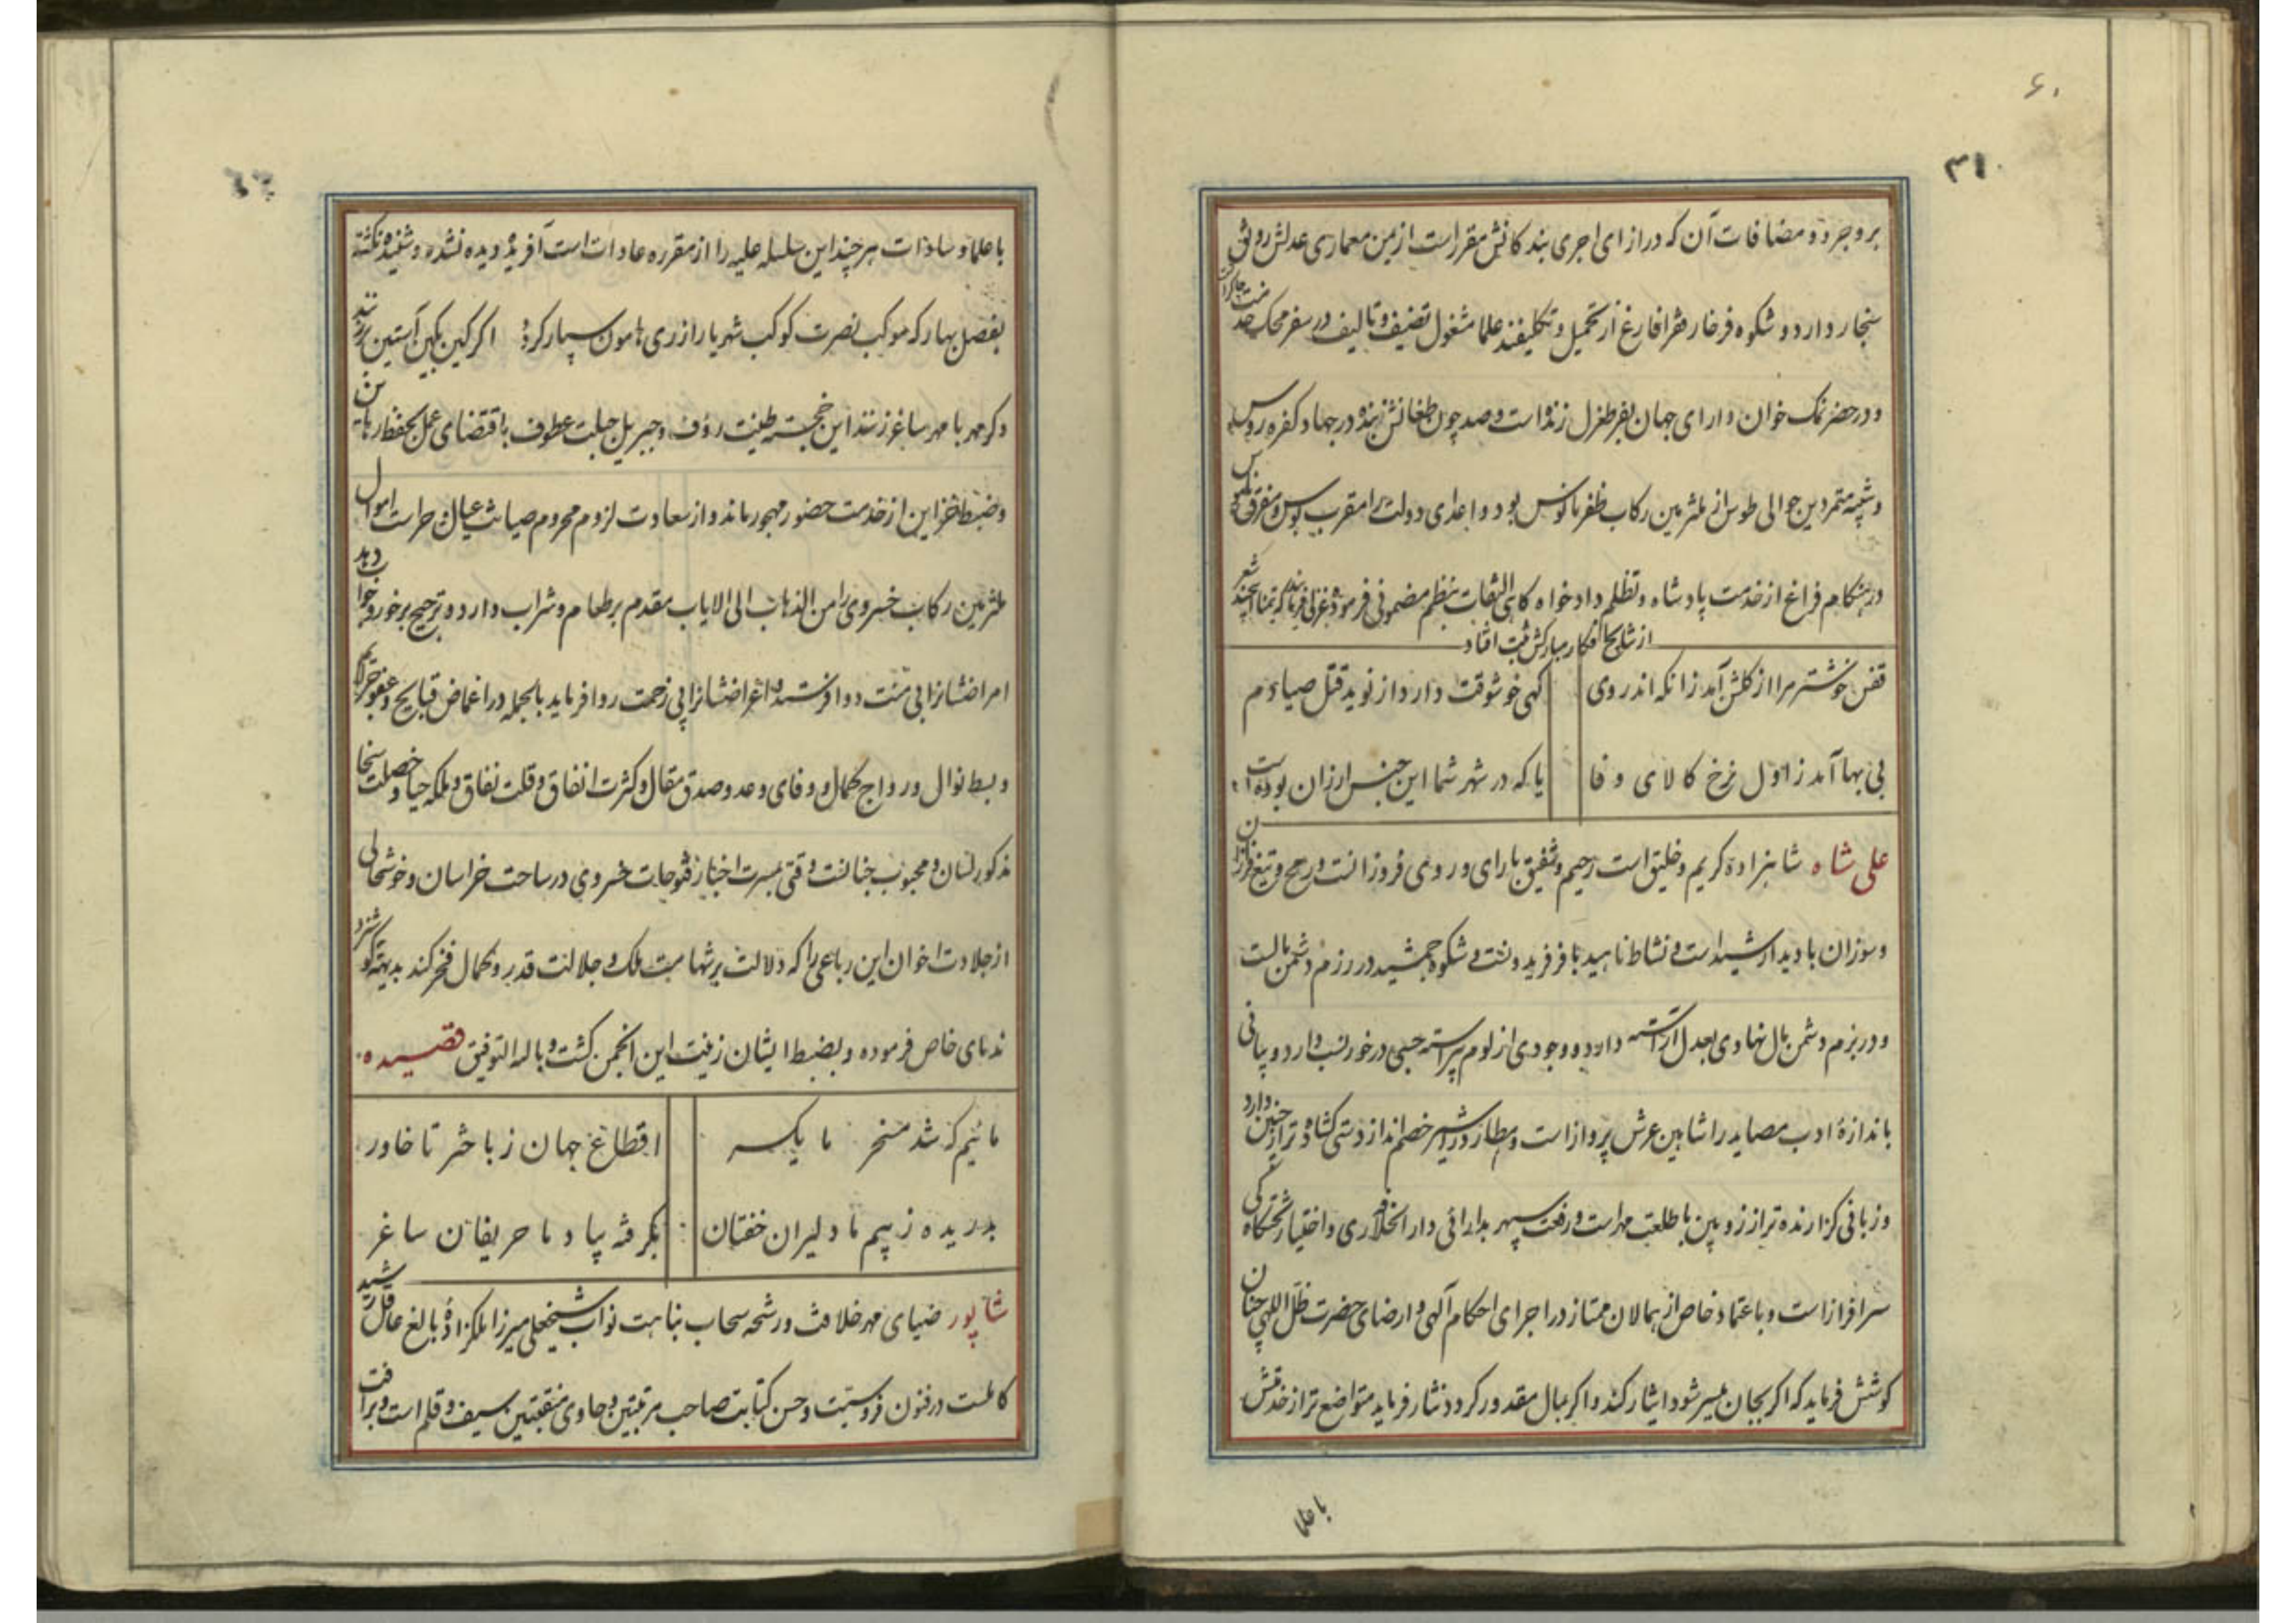 ۶۰
۳۱
بروجرد و مضافات آن که در ازای اجری بندکانش مقرر است از یمن معماری عدلش رونق
سنجار دارد و شکوه فرخار فقرا فارغ از تحمیل و تکلیفند علما مشغول تصنیف و تالیف در سفر محک خدمت چاکران
و در حضر نمک خوان دارای جهان بفر طغرل زنده است و صد چون طغانش بنده در جهاد کفره روس
و تنبیه متمردین حوالی طوس از ملتزمین رکاب ظفر مانوس بود و اعدای دولت را مقرب بوس و مفرق
در هنکام فراغ از خدمت پادشاه و تظلم دادخواه کاهی التفات بنظم مضمونی فرموده غزلی فرمایند که تیمنا این چند شعر
از نتایج افکار مبارکش ثبت افتاد
قفس خوشتر مرا از کلشن آمد زانکه اندر وی
کهی خوشوقت دارد از نوید قتل صیادم
بی بها آمد ز اول نرخ کالای وفا
یا که در شهر شما این جنس ارزان بوده است
علی شاه شاهزاده کریم و خلیق است رحیم و شفیق با رای و روی فروزانست و رمح و تیغ فرازان
و سوزان با دیدار شید است و نشاط ناهید با فر فریدونست و شکوه جمشید در رزم دشمن مالست
و در بزم دشمن مال نهادی بعدل آراسته دارد و وجودی از لوم پیراسته حسبی در خور نسب دارد و بیانی
باندازه ادب مصاید را شاهین عرش پرواز است و مطارد را شیر خصم انداز دستی کشاده تر از جبین دارد
و زبانی کزارنده تر از زوبین با طلعت مهر است و رفعت سپهر بدارائی دار الخلافه ری و اختیار تختکاه کی
سرافراز است و باعتماد خاص از همالان ممتاز در اجرای احکام آلهی و ارضای حضرت ظل اللهی چنان
کوشش فرماید که اکر بجان میسر شود ایثار کند و اکر بمال مقدور کردد نثار فرماید متواضع تر از خدمتش
با علما
با علما و سادات هر چند این سلسله علیه را از مقرره عادات است آفریده دیده نشده و شنیده نکشته
بفصل بهار که موکب نصرت کوکب شهریار از ری هامون سپار کردد اکر کین بکین آستین بر زند
و کر مهر با مهر ساغر زند این خجسته طینت رؤف و جبریل جبلت عطوف باقتضای عمل بحفظ رهاین
و ضبط خزاین از خدمت حضور مهجور ماند و از سعادت لزوم محروم صیانت عیال و حراست اموال
ملتزمین رکاب خسروی را من الذهاب الی الایاب مقدم بر طعام و شراب دارد و ترجیح بر خور و خواب دهد
امراضشانرا بی منت دوا فرستد و اغراضشانرا بی زحمت روا فرماید بالجمله در اغماض قبایح و عفو جرایم
و بسط نوال و رواج کمال و وفای وعد و صدق مقال و کثرت انفاق و قلت نفاق و ملکه حیا و خصلت سخا
مذکور لسان و محبوب جنانست وقتی بمسرت اخبار فتوحات خسروی در ساحت خراسان و خوشحالی
از جلادت اخوان این رباعی را که دلالت بر شهامت ملک و جلالت قدر و کمال فخر کند بدیهة کوشزد
ندمای خاص فرموده و بضبط ایشان زینت این انجمن کشت و بالله التوفیق قصیده
مائیم که شد مسخر ما یکسر
اقطاع جهان ز باختر تا خاور
بدریده ز بیم ما دلیران خفتان
بکرفته بیاد ما حریفان ساغر
شاپور ضیای مهر خلافت و رشحه سحاب نباهت نواب شیخعلی میرزا ملکزاده بالغ عاقل رشید
کاملست در فنون فروسیت و حسن کتابت صاحب مرتبتین و حاوی منقبتین سیف و قلم است و بر افت